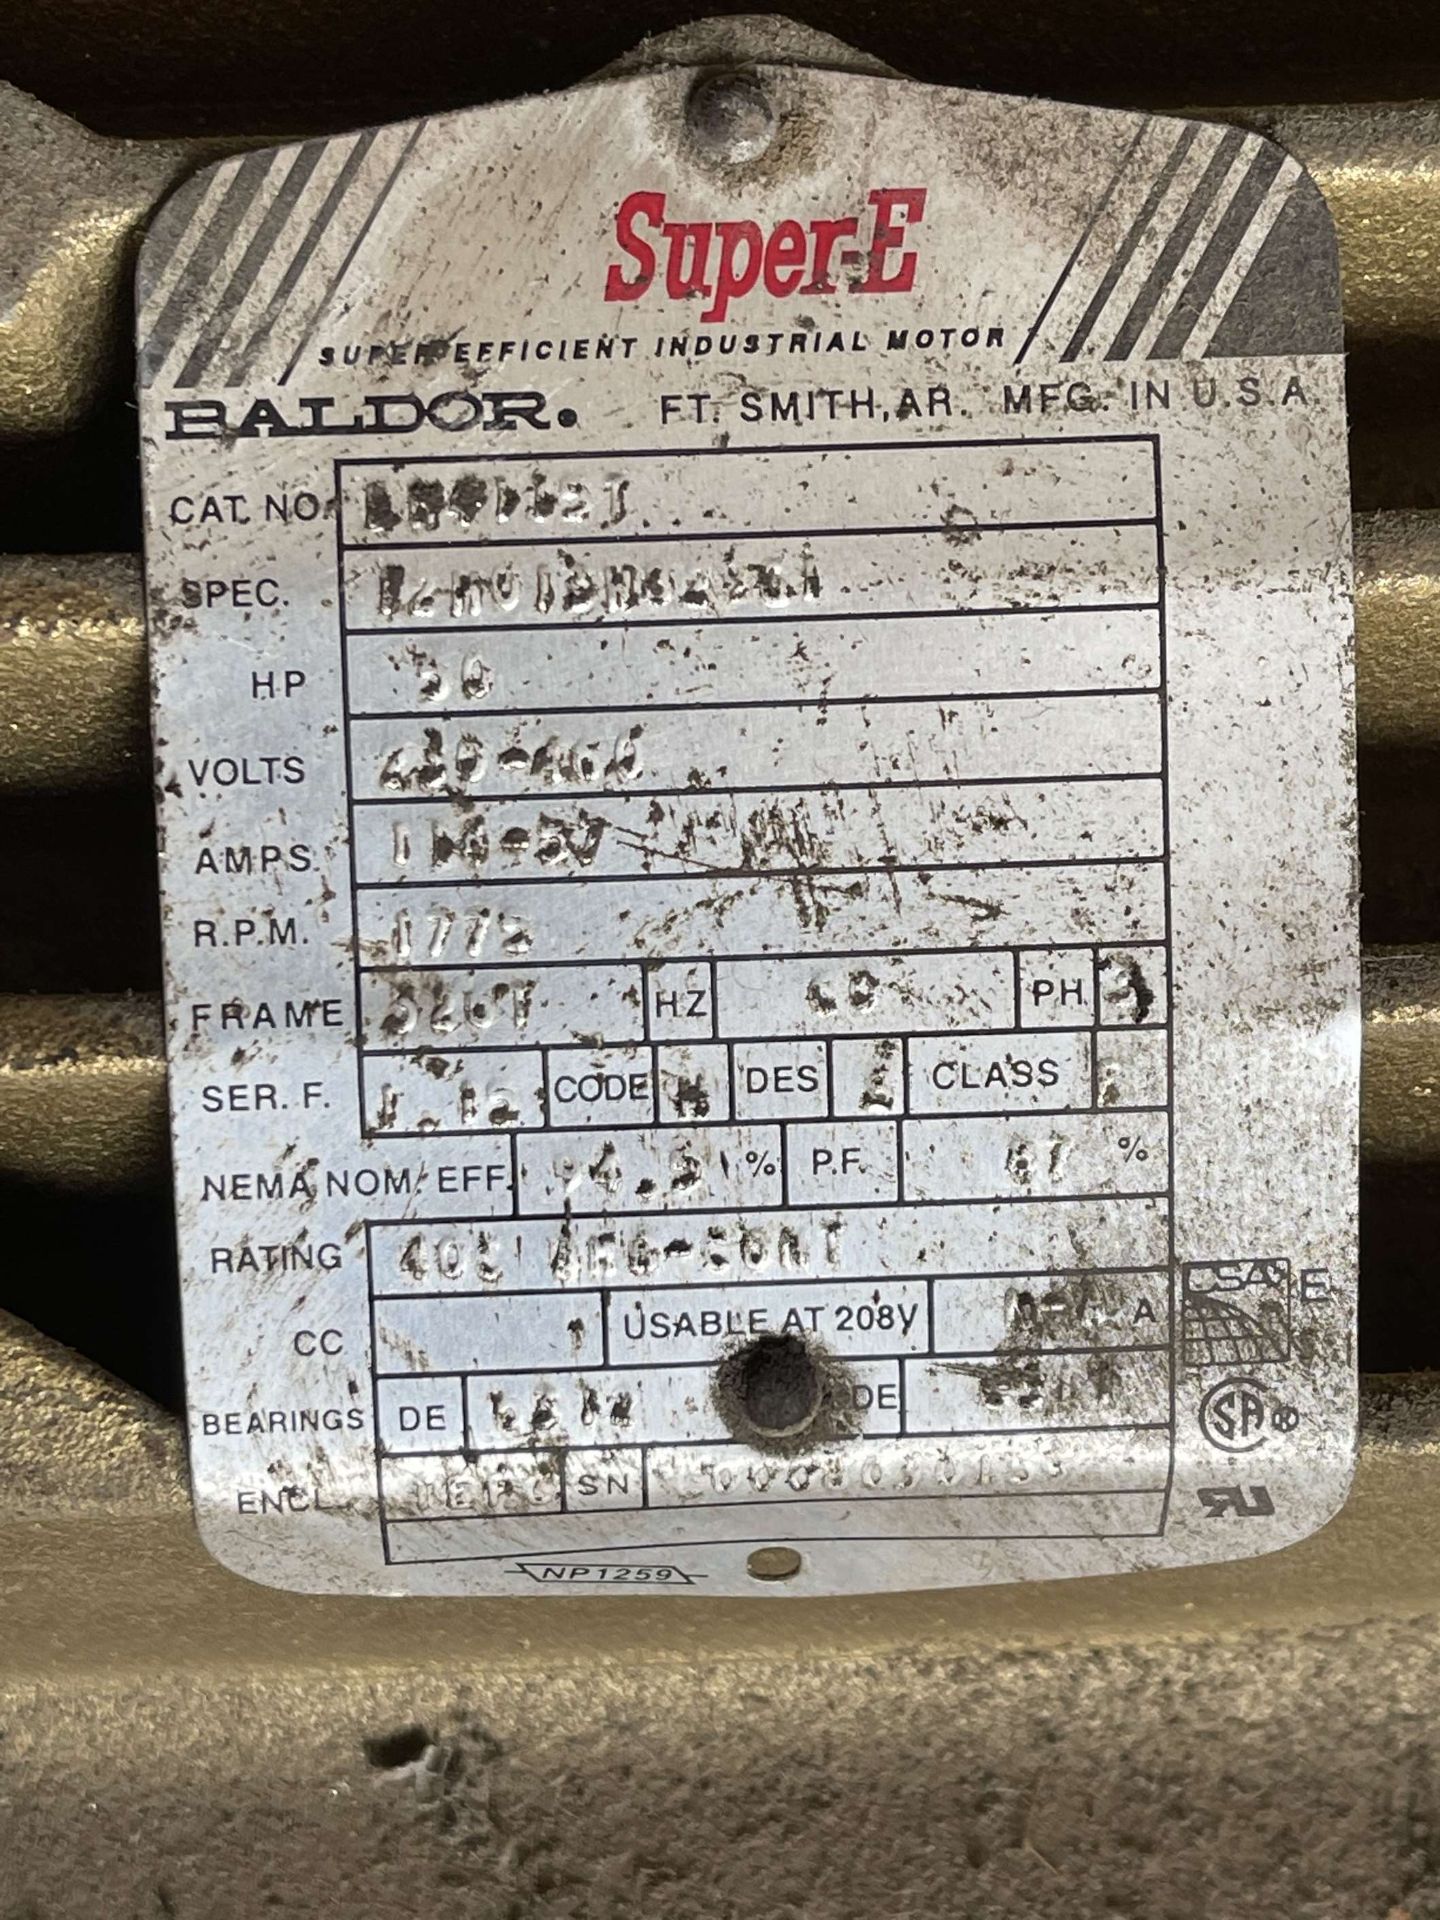 Super-E
SUPER-EFFICIENT INDUSTRIAL MOTOR
BALDOR. FT. SMITH, AR. MFG. IN U.S.A.
CAT. NO.
SPEC.
HP 50
VOLTS 230-460
AMPS.
R.P.M. 1775
FRAME 326T HZ 60 PH 3
SER. F. 1.15 CODE H DES CLASS
NEMA NOM. EFF. 94.5 % P.F. 87 %
RATING 40C AMB-CONT
CC USABLE AT 208V A
BEARINGS DE DE
ENCL. TEFC SN
NP1259
CSA E
SA ®
UR